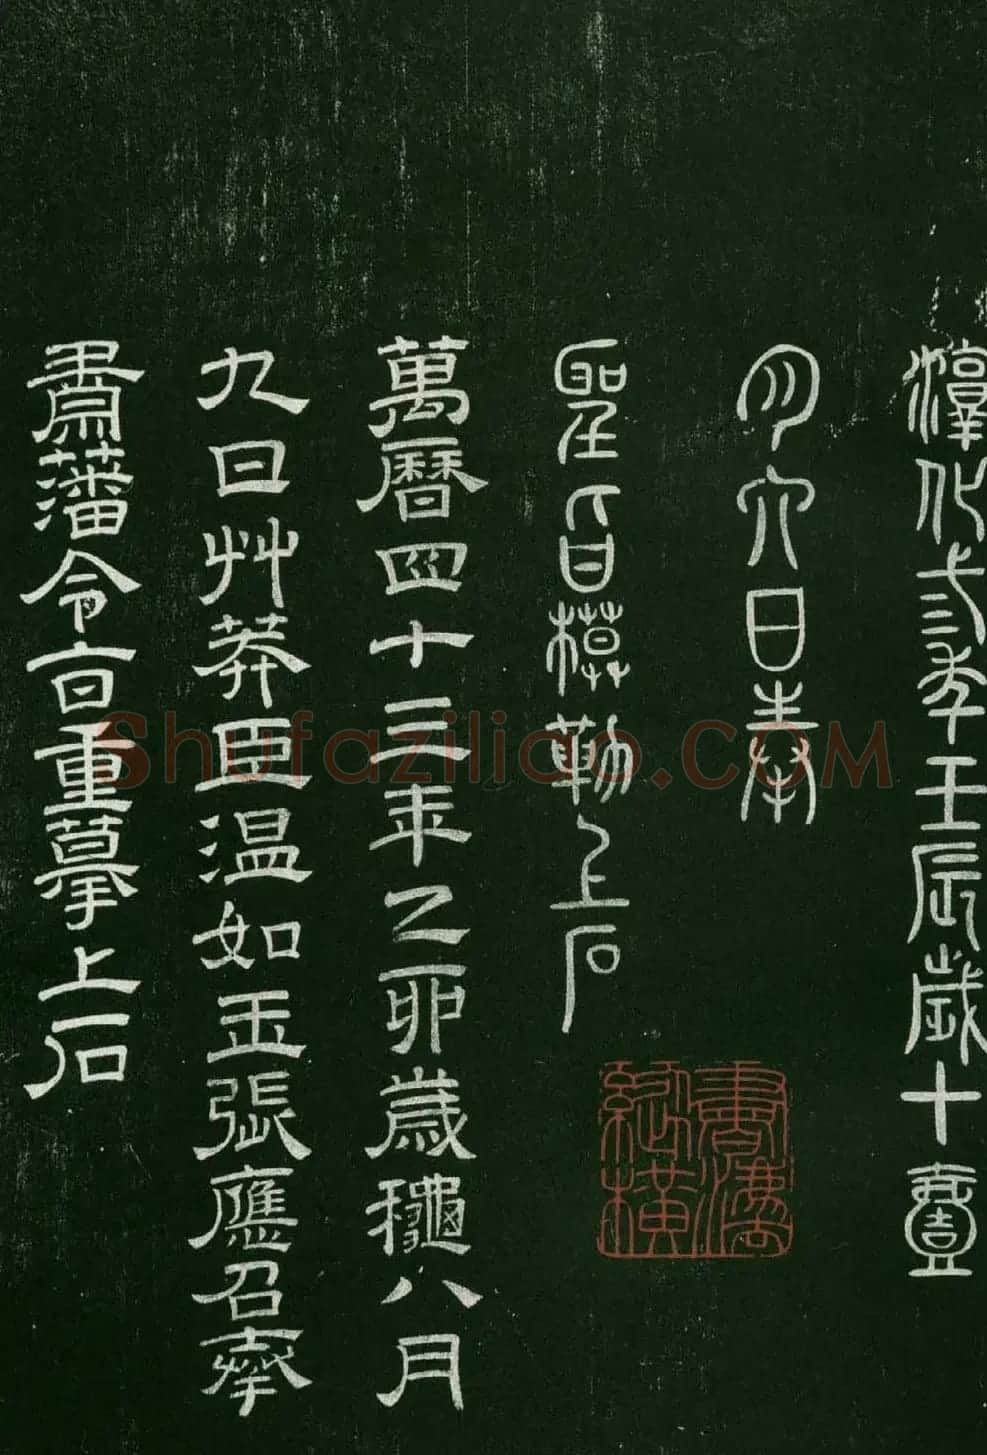 淳化弎年壬辰歲十壹
月六日奉
聖旨模勒上石
萬曆四十三年乙卯歲龝八月
九日艸莽臣温如玉張應召奉
肅藩令旨重摹上石
書法縱橫
Shufaziliao.COM